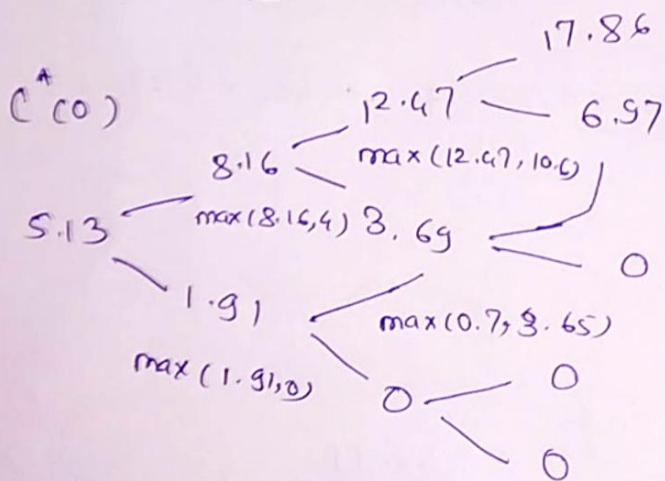 17.86
C^A(0)
12.47
6.97
8.16
max(12.47, 10.6)
5.13
max(8.16,4)
3.69
0
1.91
max(0.7, 3.65)
max(1.91,0)
0
0
0